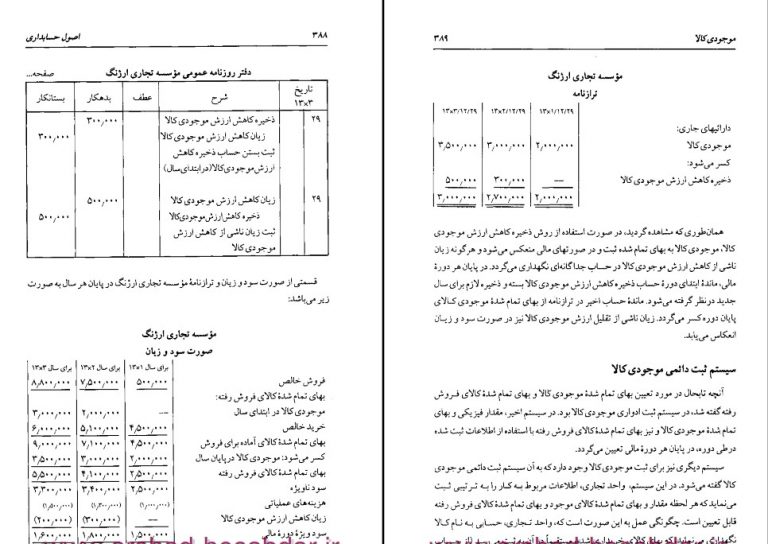 ۳۸۸
اصول حسابداری
دفتر روزنامه عمومی مؤسسه تجاری ارژنگ
صفحه...
تاریخ ۱۳×۳ شرح عطف بدهکار بستانکار
۲۹ ذخیره کاهش ارزش موجودی کالا ۳۰۰٫۰۰۰
زیان کاهش ارزش موجودی کالا ۳۰۰٫۰۰۰
ثبت بستن حساب ذخیره کاهش
ارزش موجودی کالا (در ابتدای سال)
۲۹ زیان کاهش ارزش موجودی کالا ۵۰۰٫۰۰۰
ذخیره کاهش ارزش موجودی کالا ۵۰۰٫۰۰۰
ثبت زیان ناشی از کاهش ارزش
موجودی کالا
قسمتی از صورت سود و زیان و ترازنامهٔ مؤسسه تجاری ارژنگ در پایان هر سال به صورت
زیر می‌باشد:
مؤسسه تجاری ارژنگ
صورت سود و زیان
برای سال ۱۳×۱ برای سال ۱۳×۲ برای سال ۱۳×۳
فروش خالص ۵۰۰٫۰۰۰ ۷٫۵۰۰٫۰۰۰ ۸٫۸۰۰٫۰۰۰
بهای تمام شدهٔ کالای فروش رفته:
موجودی کالا در ابتدای سال — ۲٫۰۰۰٫۰۰۰ ۳٫۰۰۰٫۰۰۰
خرید خالص ۴٫۵۰۰٫۰۰۰ ۵٫۱۰۰٫۰۰۰ ۶٫۰۰۰٫۰۰۰
بهای تمام شدهٔ کالای آماده برای فروش ۴٫۵۰۰٫۰۰۰ ۷٫۱۰۰٫۰۰۰ ۹٫۰۰۰٫۰۰۰
کسر می‌شود: موجودی کالا در پایان سال ۲٫۰۰۰٫۰۰۰ ۳٫۰۰۰٫۰۰۰ ۳٫۵۰۰٫۰۰۰
بهای تمام شدهٔ کالای فروش رفته ۲٫۵۰۰٫۰۰۰ ۴٫۱۰۰٫۰۰۰ ۵٫۵۰۰٫۰۰۰
سود ناویژه ۲٫۵۰۰٫۰۰۰ ۳٫۴۰۰٫۰۰۰ ۳٫۳۰۰٫۰۰۰
هزینه‌های عملیاتی
زیان کاهش ارزش موجودی کالا — (۳۰۰٫۰۰۰) (۲۰۰٫۰۰۰)
سود ویژهٔ دورهٔ مالی ۱٫۵۰۰٫۰۰۰ ۱٫۸۰۰٫۰۰۰ ۱٫۶۰۰٫۰۰۰
موجودی کالا
۳۸۹
مؤسسه تجاری ارژنگ
ترازنامه
۱۳×۱/۱۲/۲۹ ۱۳×۲/۱۲/۲۹ ۱۳×۳/۱۲/۲۹
دارائیهای جاری:
موجودی کالا ۲٫۰۰۰٫۰۰۰ ۳٫۰۰۰٫۰۰۰ ۳٫۵۰۰٫۰۰۰
کسر می‌شود:
ذخیره کاهش ارزش موجودی کالا — ۳۰۰٫۰۰۰ ۵۰۰٫۰۰۰
۲٫۰۰۰٫۰۰۰ ۲٫۷۰۰٫۰۰۰ ۳٫۰۰۰٫۰۰۰
همان‌طوری که مشاهده گردید، در صورت استفاده از روش ذخیره کاهش ارزش موجودی
کالا، موجودی کالا به بهای تمام شده ثبت و در صورتهای مالی منعکس می‌شود و هرگونه زیان
ناشی از کاهش ارزش موجودی کالا در حساب جداگانه‌ای نگهداری می‌گردد. در پایان هر دورهٔ
مالی، ماندهٔ ابتدای دورهٔ حساب ذخیره کاهش ارزش موجودی کالا بسته و ذخیره لازم برای سال
جدید در نظر گرفته می‌شود. ماندهٔ حساب اخیر در ترازنامه از بهای تمام شدهٔ موجودی کالای
پایان دوره کسر می‌گردد. زیان ناشی از تقلیل ارزش موجودی کالا نیز در صورت سود و زیان
انعکاس می‌یابد.
سیستم ثبت دائمی موجودی کالا
آنچه تابحال در مورد تعیین بهای تمام شدهٔ موجودی کالا و بهای تمام شدهٔ کالای فروش
رفته گفته شد، در سیستم ثبت ادواری موجودی کالا بود. در سیستم اخیر، مقدار فیزیکی و بهای
تمام شدهٔ موجودی کالا و نیز بهای تمام شدهٔ کالای فروش رفته با استفاده از اطلاعات ثبت شده
در طی دوره، در پایان هر دورهٔ مالی تعیین می‌گردد.
سیستم دیگری نیز برای ثبت موجودی کالا وجود دارد که به آن سیستم ثبت دائمی موجودی
کالا گفته می‌شود. در این سیستم، واحد تجاری، اطلاعات مربوط به کار را به ترتیبی ثبت
می‌نماید که هر لحظه مقدار و بهای تمام شدهٔ موجودی کالا و بهای تمام شدهٔ کالای فروش رفته
قابل تعیین است. چگونگی عمل به این صورت است که، واحد تجاری، حسابی به نام کالا